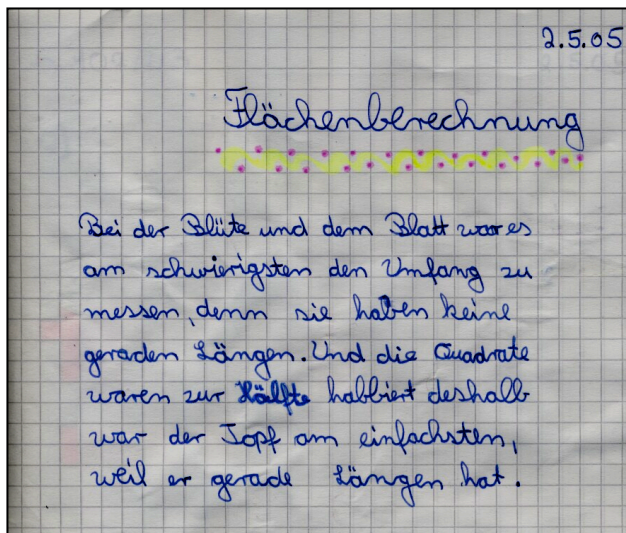 2.5.05
Flächenberechnung
Bei der Blüte und dem Blatt war es
am schwierigsten den Umfang zu
messen, denn sie haben keine
geraden Längen. Und die Quadrate
waren zur Hälfte habbiert deshalb
war der Topf am einfachsten,
weil er gerade Längen hat.